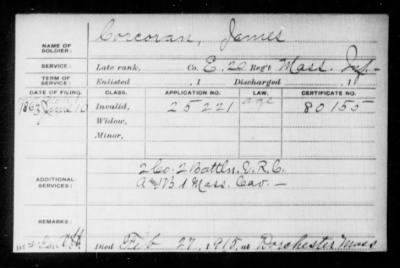 NAME OF SOLDIER: Corcoran, James
SERVICE: Late rank, Co. E, 20 Reg't Mass. Inf.
TERM OF SERVICE: Enlisted , 1 Discharged , 1
DATE OF FILING. CLASS. APPLICATION NO. LAW. CERTIFICATE NO.
1863 Invalid, 25221 age 80155
Widow,
Minor,
ADDITIONAL SERVICES: 2 Co. 2 Battln. V.R.C.
A & B 1 Mass. Cav.
REMARKS:
Died Feb 27, 1915, at Dorchester Mass